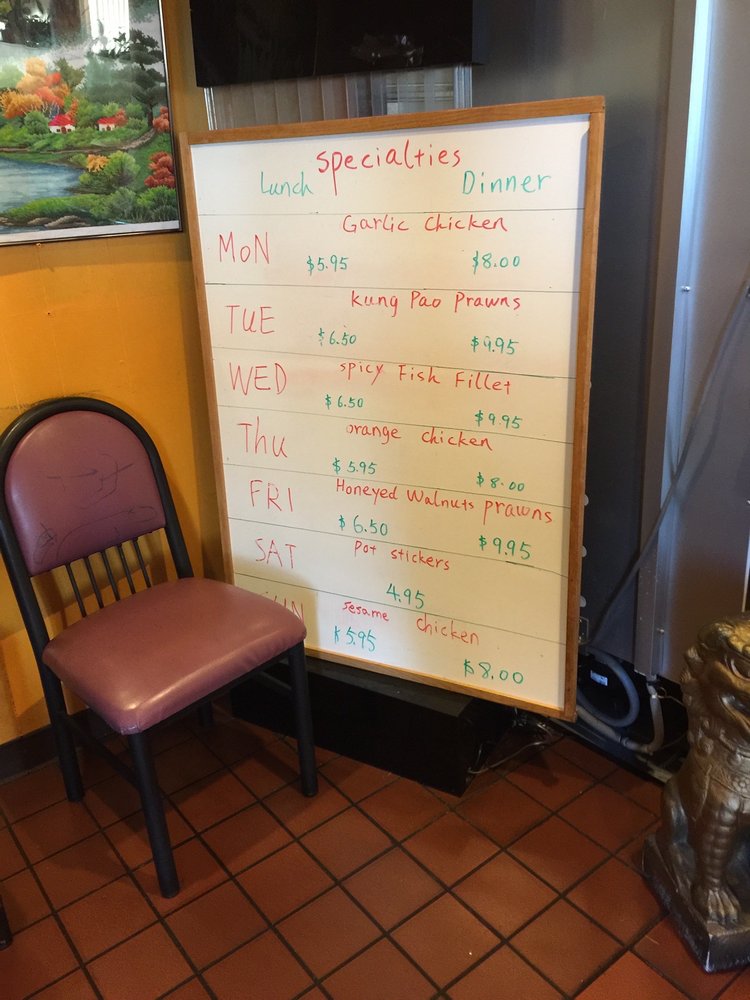 specialties
Lunch Dinner
Garlic chicken
MON $5.95 $8.00
kung Pao prawns
TUE $6.50 $9.95
spicy Fish Fillet
WED $6.50 $9.95
orange chicken
Thu $5.95 $8.00
Honeyed Walnuts prawns
FRI $6.50 $9.95
pot stickers
SAT 4.95
sesame chicken
SUN $5.95 $8.00